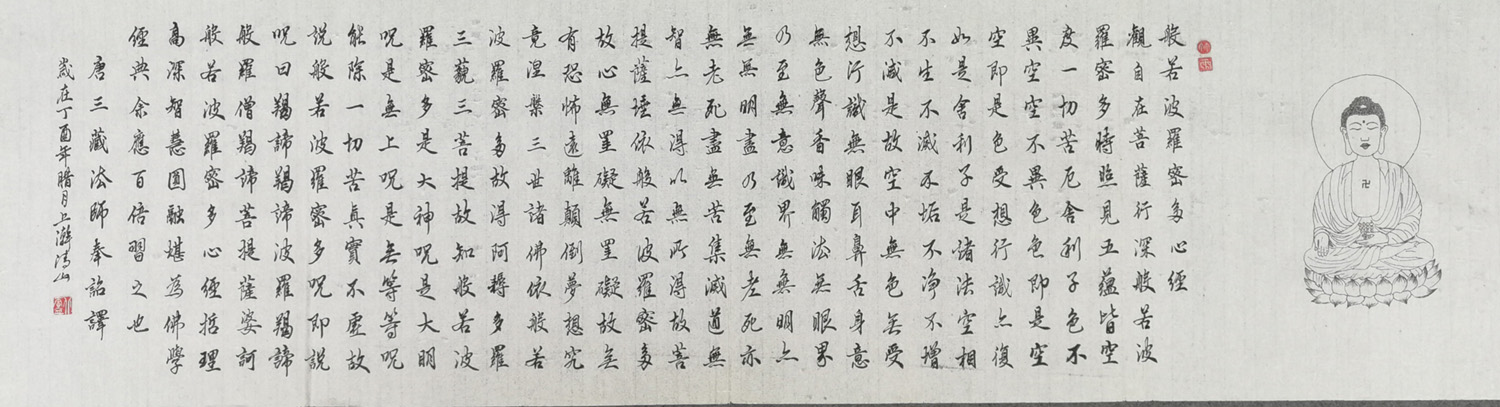 般若波羅密多心經
觀自在菩薩行深般若波
羅密多時照見五蘊皆空
度一切苦厄舍利子色不
異空空不異色色即是空
空即是色受想行識亦復
如是舍利子是諸法空相
不生不滅不垢不淨不增
不減是故空中無色無受
想行識無眼耳鼻舌身意
無色聲香味觸法無眼界
乃至無意識界無無明亦
無無明盡乃至無老死亦
無老死盡無苦集滅道無
智亦無得以無所得故菩
提薩埵依般若波羅密多
故心無罣礙無罣礙故無
有恐怖遠離顛倒夢想究
竟涅槃三世諸佛依般若
波羅密多故得阿耨多羅
三藐三菩提故知般若波
羅密多是大神呪是大明
呪是無上呪是無等等呪
能除一切苦真實不虛故
說般若波羅密多呪即說
呪曰羯諦羯諦波羅羯諦
般羅僧羯諦菩提薩婆訶
般若波羅密多心經哲理
高深智慧圓融堪為佛學
經典余應百倍習之也
唐三藏法師奉詔譯
歲在丁酉年臘月上澣清山